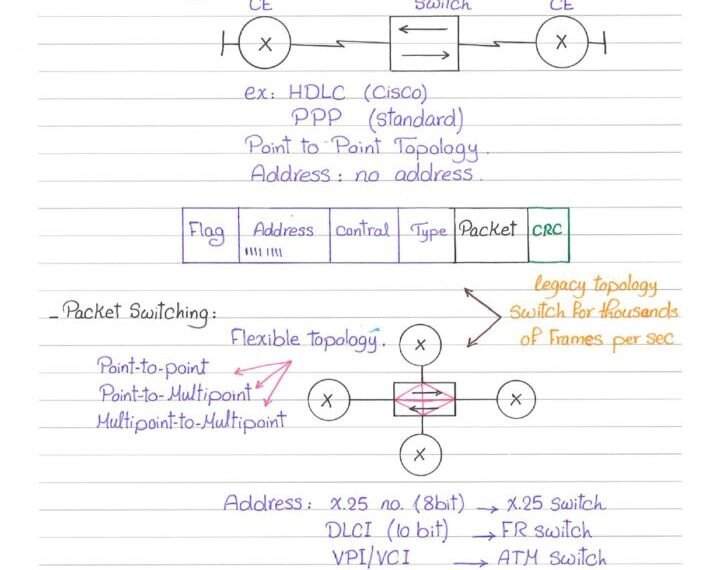 CE Switch CE
X X
ex: HDLC (Cisco)
PPP (standard)
Point to Point Topology.
Address: no address.
Flag Address Control Type Packet CRC
1111 1111
legacy topology
Switch for thousands
of Frames per sec
_ Packet Switching:
Flexible topology.
Point-to-point
Point-to-Multipoint
Multipoint-to-Multipoint
X
X X
X
Address: X.25 no. (8bit) → X.25 Switch
DLCI (10 bit) → FR switch
VPI/VCI → ATM Switch